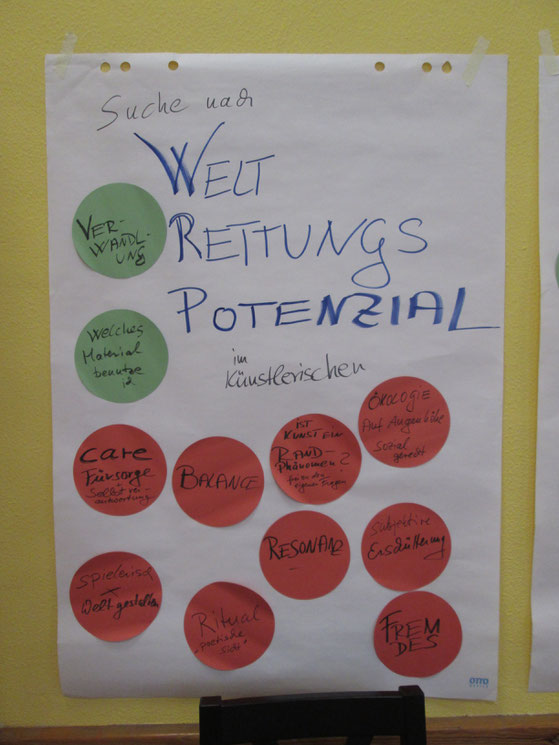 Suche nach
WELT
RETTUNGS
POTENZIAL
im
künstlerischen
VER-
WANDL-
UNG
Welches
Material
benutze
ich
ÖKOLOGIE
Auf Augenhöhe
Sozial
gerecht
IST
KUNST EIN
RAND-
Phänomen?
eigenen Fragen
care
Fürsorge
BALANCE
RESONANZ
Subjektive
Erschütterung
spielerisch
Welt gestalten
Ritual
FREM
DES
OTTO